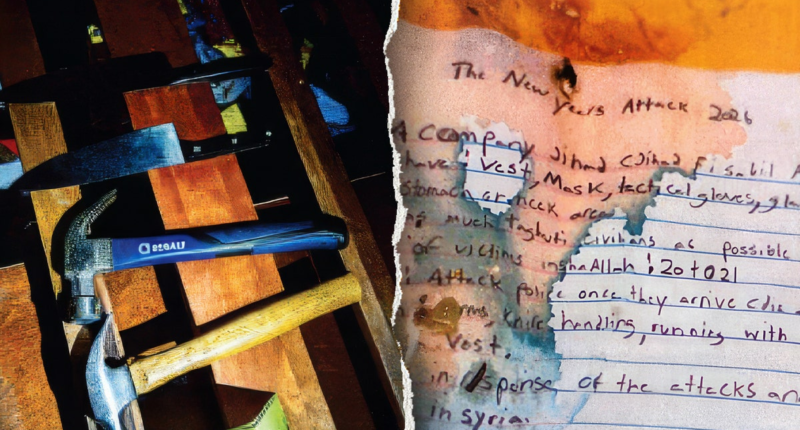 The New
Years Attack 2026
A Company Jihad (Jihad Fi sabil
have: Vest, Mask, tactical gloves,
stomach or neck area
much Taghuti civilians as possible
of victims inshaAllah: 20 to 21
Attack police once they arrive
Knife handling, running with
Vest.
in response of the attacks
in Syria.